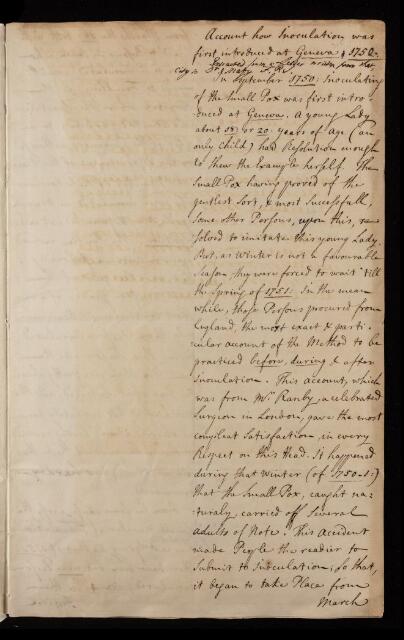 Account how Inoculation was
first introduced at Geneva, 1750.
Extracted from a Letter written from that
City to Dr. Maty F.R.S.
In September 1750: Inoculating
of the Small Pox was first intro-
duced at Geneva. A young Lady
about 18: or 20: years of Age (an
only Child,) had Resolution enough
to shew the Example herself. The
Small Pox having proved of the
gentlest Sort, & most Successfull,
Some other Persons, upon this, re-
solved to imitate this young Lady.
But, as Winter is not a favourable
Season they were forced to wait 'till
the Spring of 1751: In the mean
while, those Persons procured from
England, the most exact & parti-
cular account of the Method to be
practised before, during & after
Inoculation. This account, which
was from Mr. Ranby, a celebrated
Surgeon in London, gave the most
compleat Satisfaction, in every
Respect on this Head. It happened
during that Winter (of 1750-1:)
that the Small Pox, caught na-
turaly, carried off Several
Adults of Note. This Accident
made People the readier to
Submit to Inoculation; So that,
it began to take Place from
March